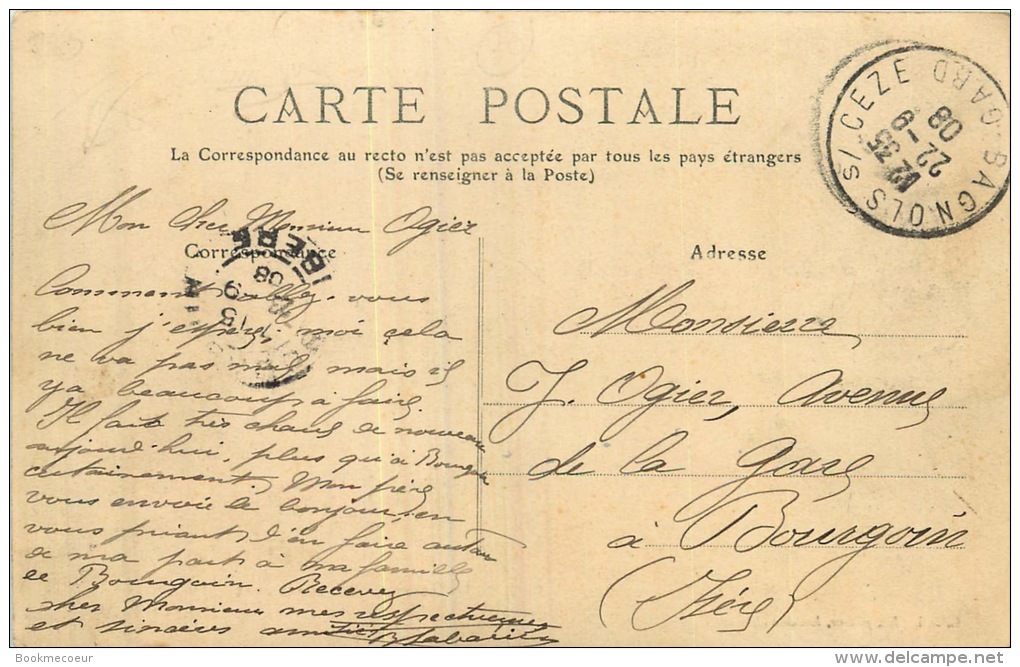 CARTE POSTALE
La Correspondance au recto n'est pas acceptée par tous les pays étrangers
(Se renseigner à la Poste)
BAGNOLS S/ CEZE GARD
12 35
22 - 9
08
Mon cher Monsieur Ogier
Correspondance
Adresse
ISERE
08
9
13
Comment allez-vous
bien j'espère, moi cela
ne va pas mal, mais il
ya beaucoup à faire.
Il fait très chaud de nouveau
aujourd'hui, plus qu'à Bourgoin
certainement. Mon père
vous envoie le bonjour, en
vous priant d'en faire autant
de ma part à ma famille
de Bourgoin. Recevez
cher Monsieur mes respectueuses
et sincères amitiés
Monsieur
J. Ogier, Avenue
de la Gare
à Bourgoin
(Isère)
Bookmecoeur
www.delcampe.net